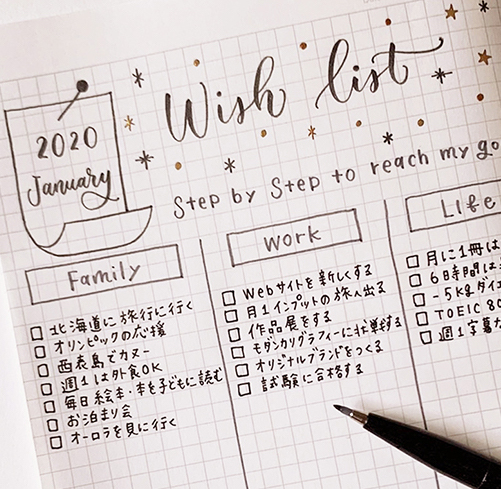 Wish list
2020
January
Step by Step to reach my go
Family
北海道に旅行に行く
オリンピックの応援
西表島でカヌー
週1は外食OK
毎日絵本・本を子どもに読む
お泊まり会
オーロラを見に行く
Work
Webサイトを新しくする
月1インプットの旅へ出る
作品展をする
モダンカリグラフィーに挑戦する
オリジナルブランドをつくる
試験に合格する
LIfe
月に1冊は
6時間は
-5kgダイ
TOEIC 80
週1字幕な